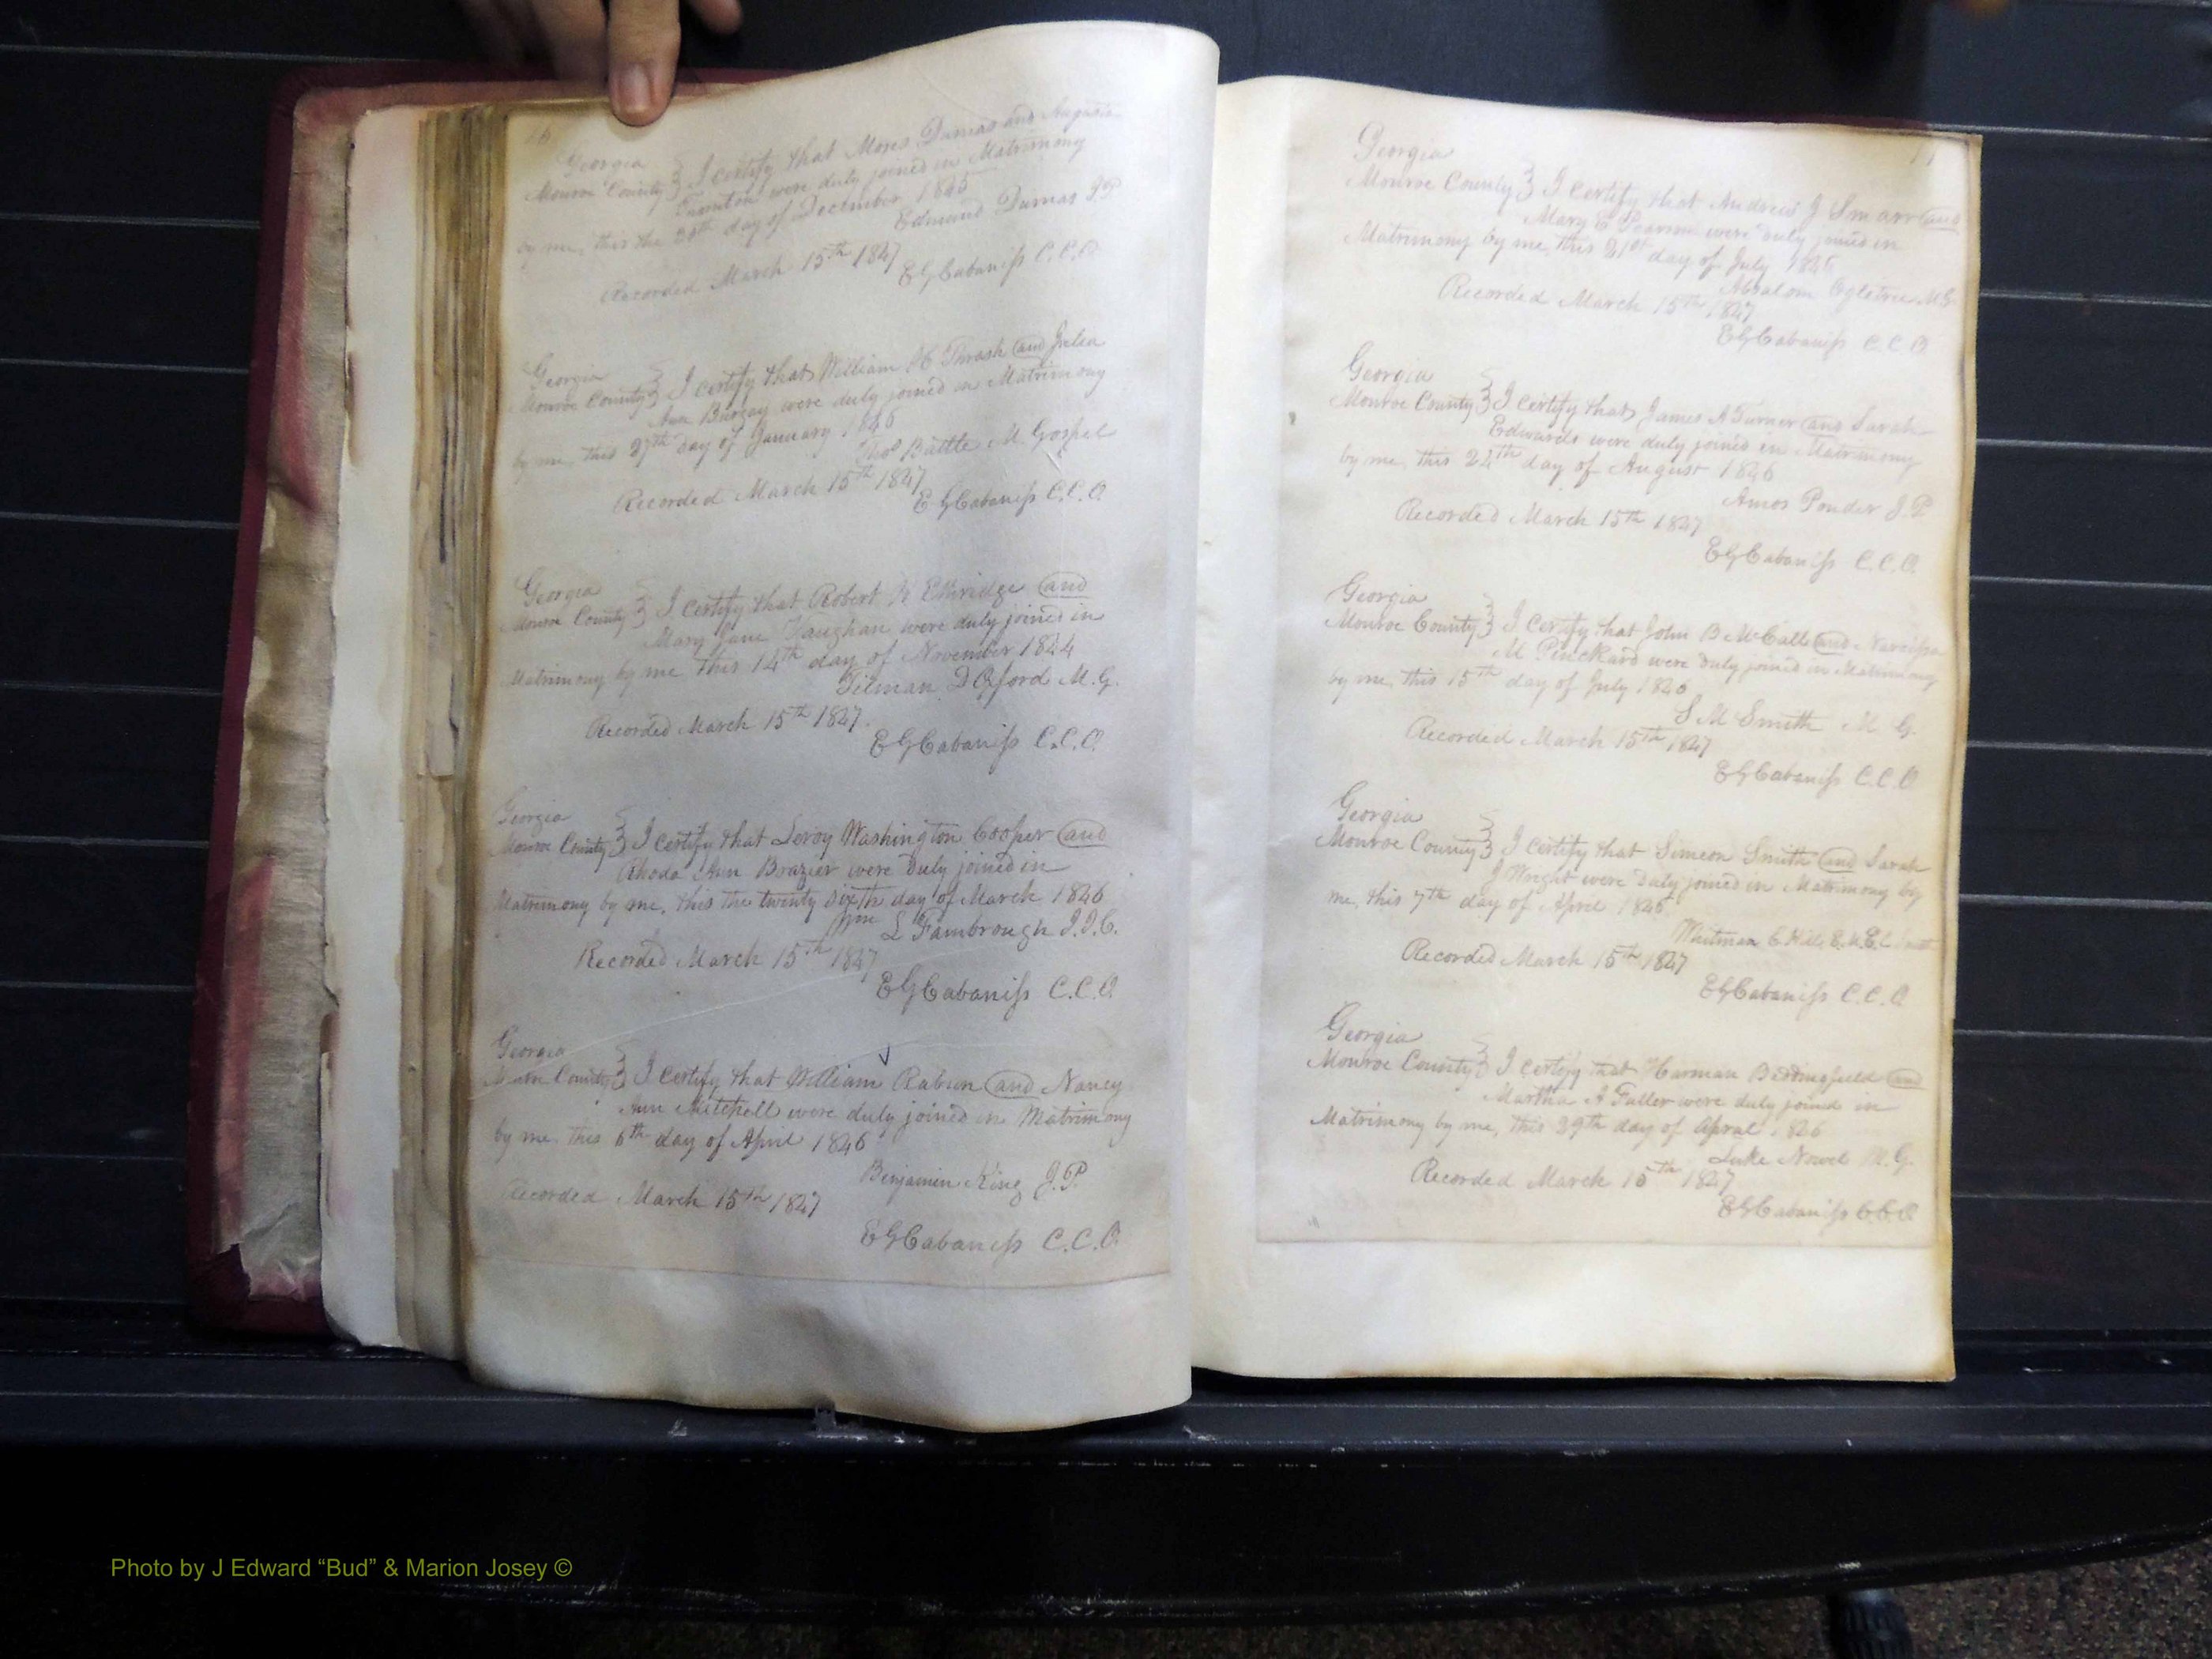 16
Georgia
Monroe County } I certify that Moses Dumas and Augusta
Thornton were duly joined in Matrimony
by me, this the day of December 1845
Edmund Dumas J.P.
Recorded March 15th 1847
E G Cabaniss C.C.O.
Georgia
Monroe County } I certify that William H Thrash and Julia
Ann Bungay were duly joined in Matrimony
by me, this 27th day of January 1846
Thos Battle M. Gospel
Recorded March 15th 1847
E G Cabaniss C.C.O.
Georgia
Monroe County } I certify that Robert Ethridge and
Mary Jane Vaughan were duly joined in
Matrimony by me this 14th day of November 1844
Tilman D Oxford M.G.
Recorded March 15th 1847.
E G Cabaniss C.C.O.
Georgia
Monroe County } I certify that Leroy Washington Cooper and
Rhoda Ann Brazier were Duly joined in
Matrimony by me, this the twenty sixth day of March 1846
Wm L Fambrough J.I.C.
Recorded March 15th 1847
E G Cabaniss C.C.O.
Georgia
Monroe County } I certify that William Rabun and Nancy
Ann Mitchell were duly joined in Matrimony
by me, this 6th day of April 1846
Benjamin King J.P.
Recorded March 15th 1847
E G Cabaniss C.C.O.
Georgia
Monroe County } I certify that Andrew J Smarr and
Mary E were duly joined in
Matrimony by me, this 21st day of July 1846
Absalom Ogletree M.G.
Recorded March 15th 1847
E G Cabaniss C.C.O.
Georgia
Monroe County } I certify that James A Turner and Sarah
Edwards were duly joined in Matrimony
by me, this day of August 1846
Amos Ponder J.P.
Recorded March 15th 1847
E G Cabaniss C.C.O.
Georgia
Monroe County } I certify that John B McCall and Narcissa
M Pinckard were Duly joined in Matrimony
by me, this 15th day of July 1846
S M Smith M G.
Recorded March 15th 1847
E G Cabaniss C.C.O.
Georgia
Monroe County } I certify that Simeon Smith and Sarah
J Wright were Duly joined in Matrimony by
me, this 7th day of April 1846
Whitman C. Hill
Recorded March 15th 1847
E G Cabaniss C.C.O.
Georgia
Monroe County } I certify that Harman Beddingfield and
Martha A Fuller were duly joined in
Matrimony by me, this day of Apral 1846
Luke Nowel M.G.
Recorded March 15th 1847
E G Cabaniss C.C.O.
Photo by J Edward “Bud” & Marion Josey ©